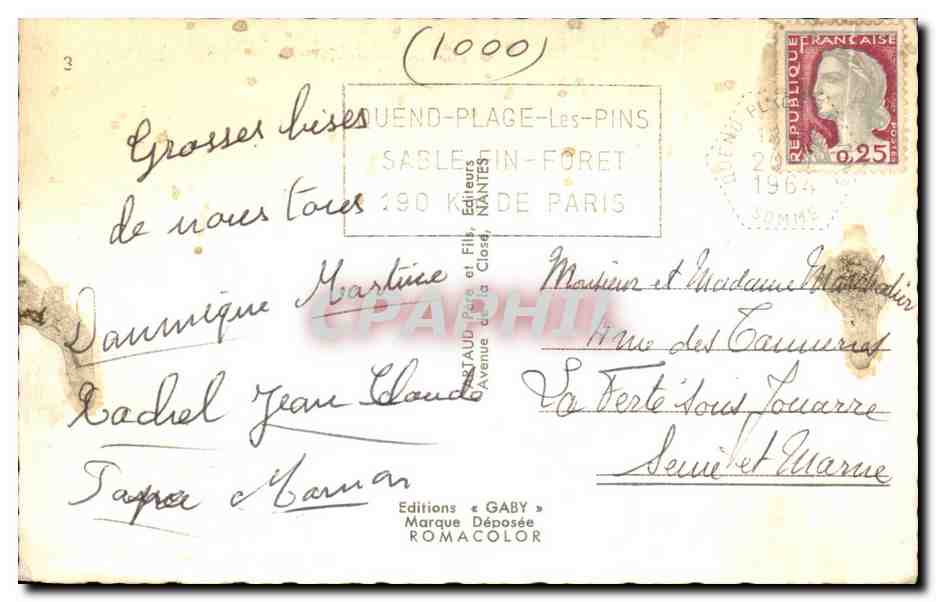 (1000)
3
Grosses bises
de nous tous
Dominique Martine
Rachel Jean Claude
Papa Maman
QUEND-PLAGE-Les-PINS
SABLE FIN-FORET
190 KM DE PARIS
REPUBLIQUE FRANCAISE
POSTES
0,25
QUEND-PLAGE
1964
SOMME
ARTAUD Père et Fils, Editeurs
Avenue de la Close, NANTES
CPAPHIL
Monsieur et Madame
4 rue des Tanneries
La Ferté sous Jouarre
Seine et Marne
Editions « GABY »
Marque Déposée
ROMACOLOR